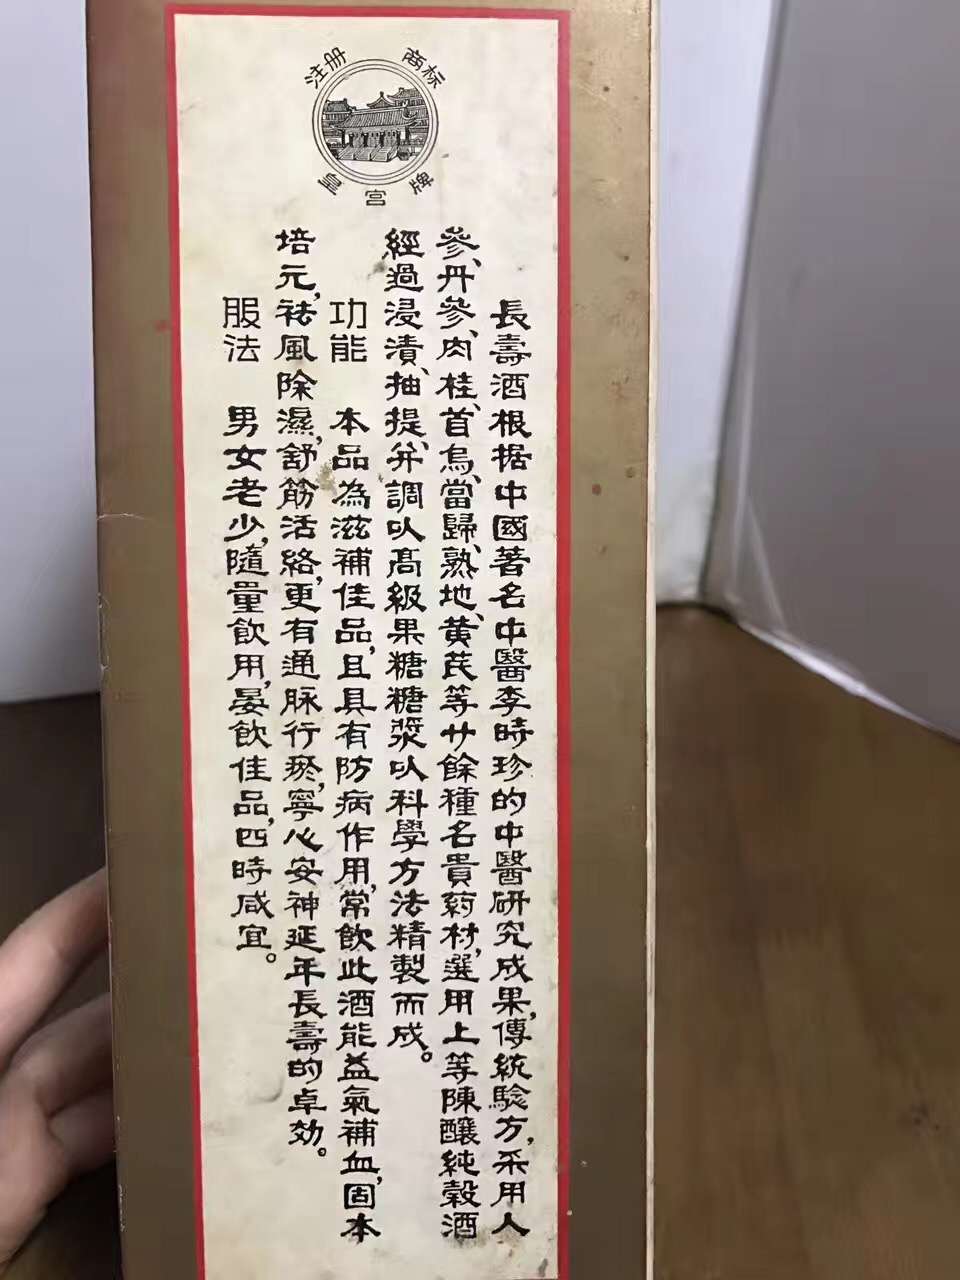 注册 商标
皇宫牌
長壽酒根据中國著名中醫李時珍的中醫研究成果,傳統驗方,采用人
參、丹參、肉桂、首烏、當歸、熟地、黄芪等廿餘種名貴药材,選用上等陳釀純穀酒
經過浸漬、抽提、并調以高級果糖糖漿以科學方法精製而成。
功能 本品為滋補佳品,且具有防病作用,常飲此酒能益氣補血,固本
培元,祛風除濕,舒筋活絡,更有通脉行瘀,寧心安神延年長壽的卓効。
服法 男女老少,隨量飲用,宴飲佳品,四時咸宜。